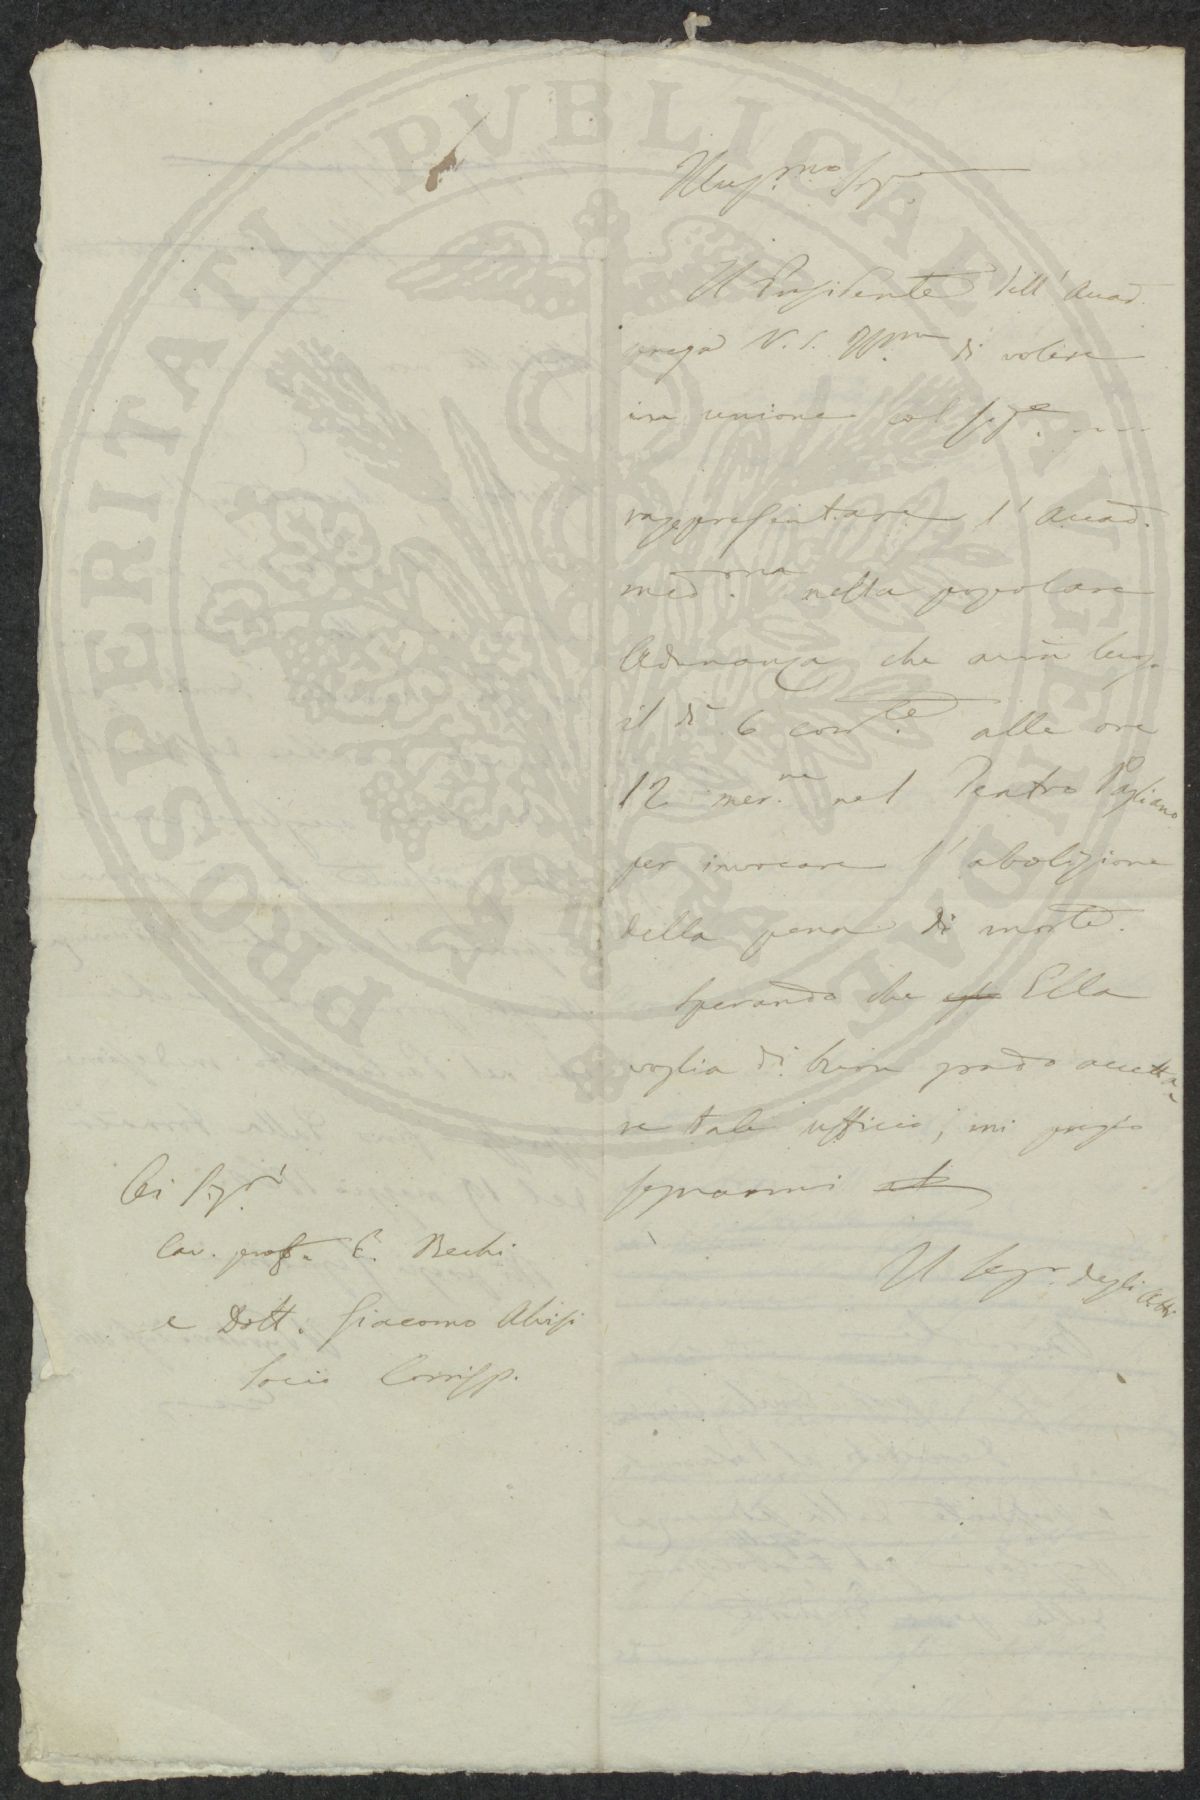 Illus.mo Sig.
Il Presidente dell' Accad.
prega V. S. Ill.ma di volere
in unione col Sig.e ....
rappresentare l' Accad.
med.ma nella popolare
Adunanza che avrà luogo
il dì 6 corr.te alle ore
12 mer.ne nel Teatro Pagliano
per invocare l' abolizione
della pena di morte.
Sperando che Ella
voglia di buon grado accetta-
re tale ufficio, mi pregio
segnarmi
Il Segr. degli Atti
Ai Sig.ri
Cav. prof. E. Bechi
e Dott. Giacomo Alvisi
Socio Corrisp.
PROSPERITATI PVBLICAE AVGENDAE